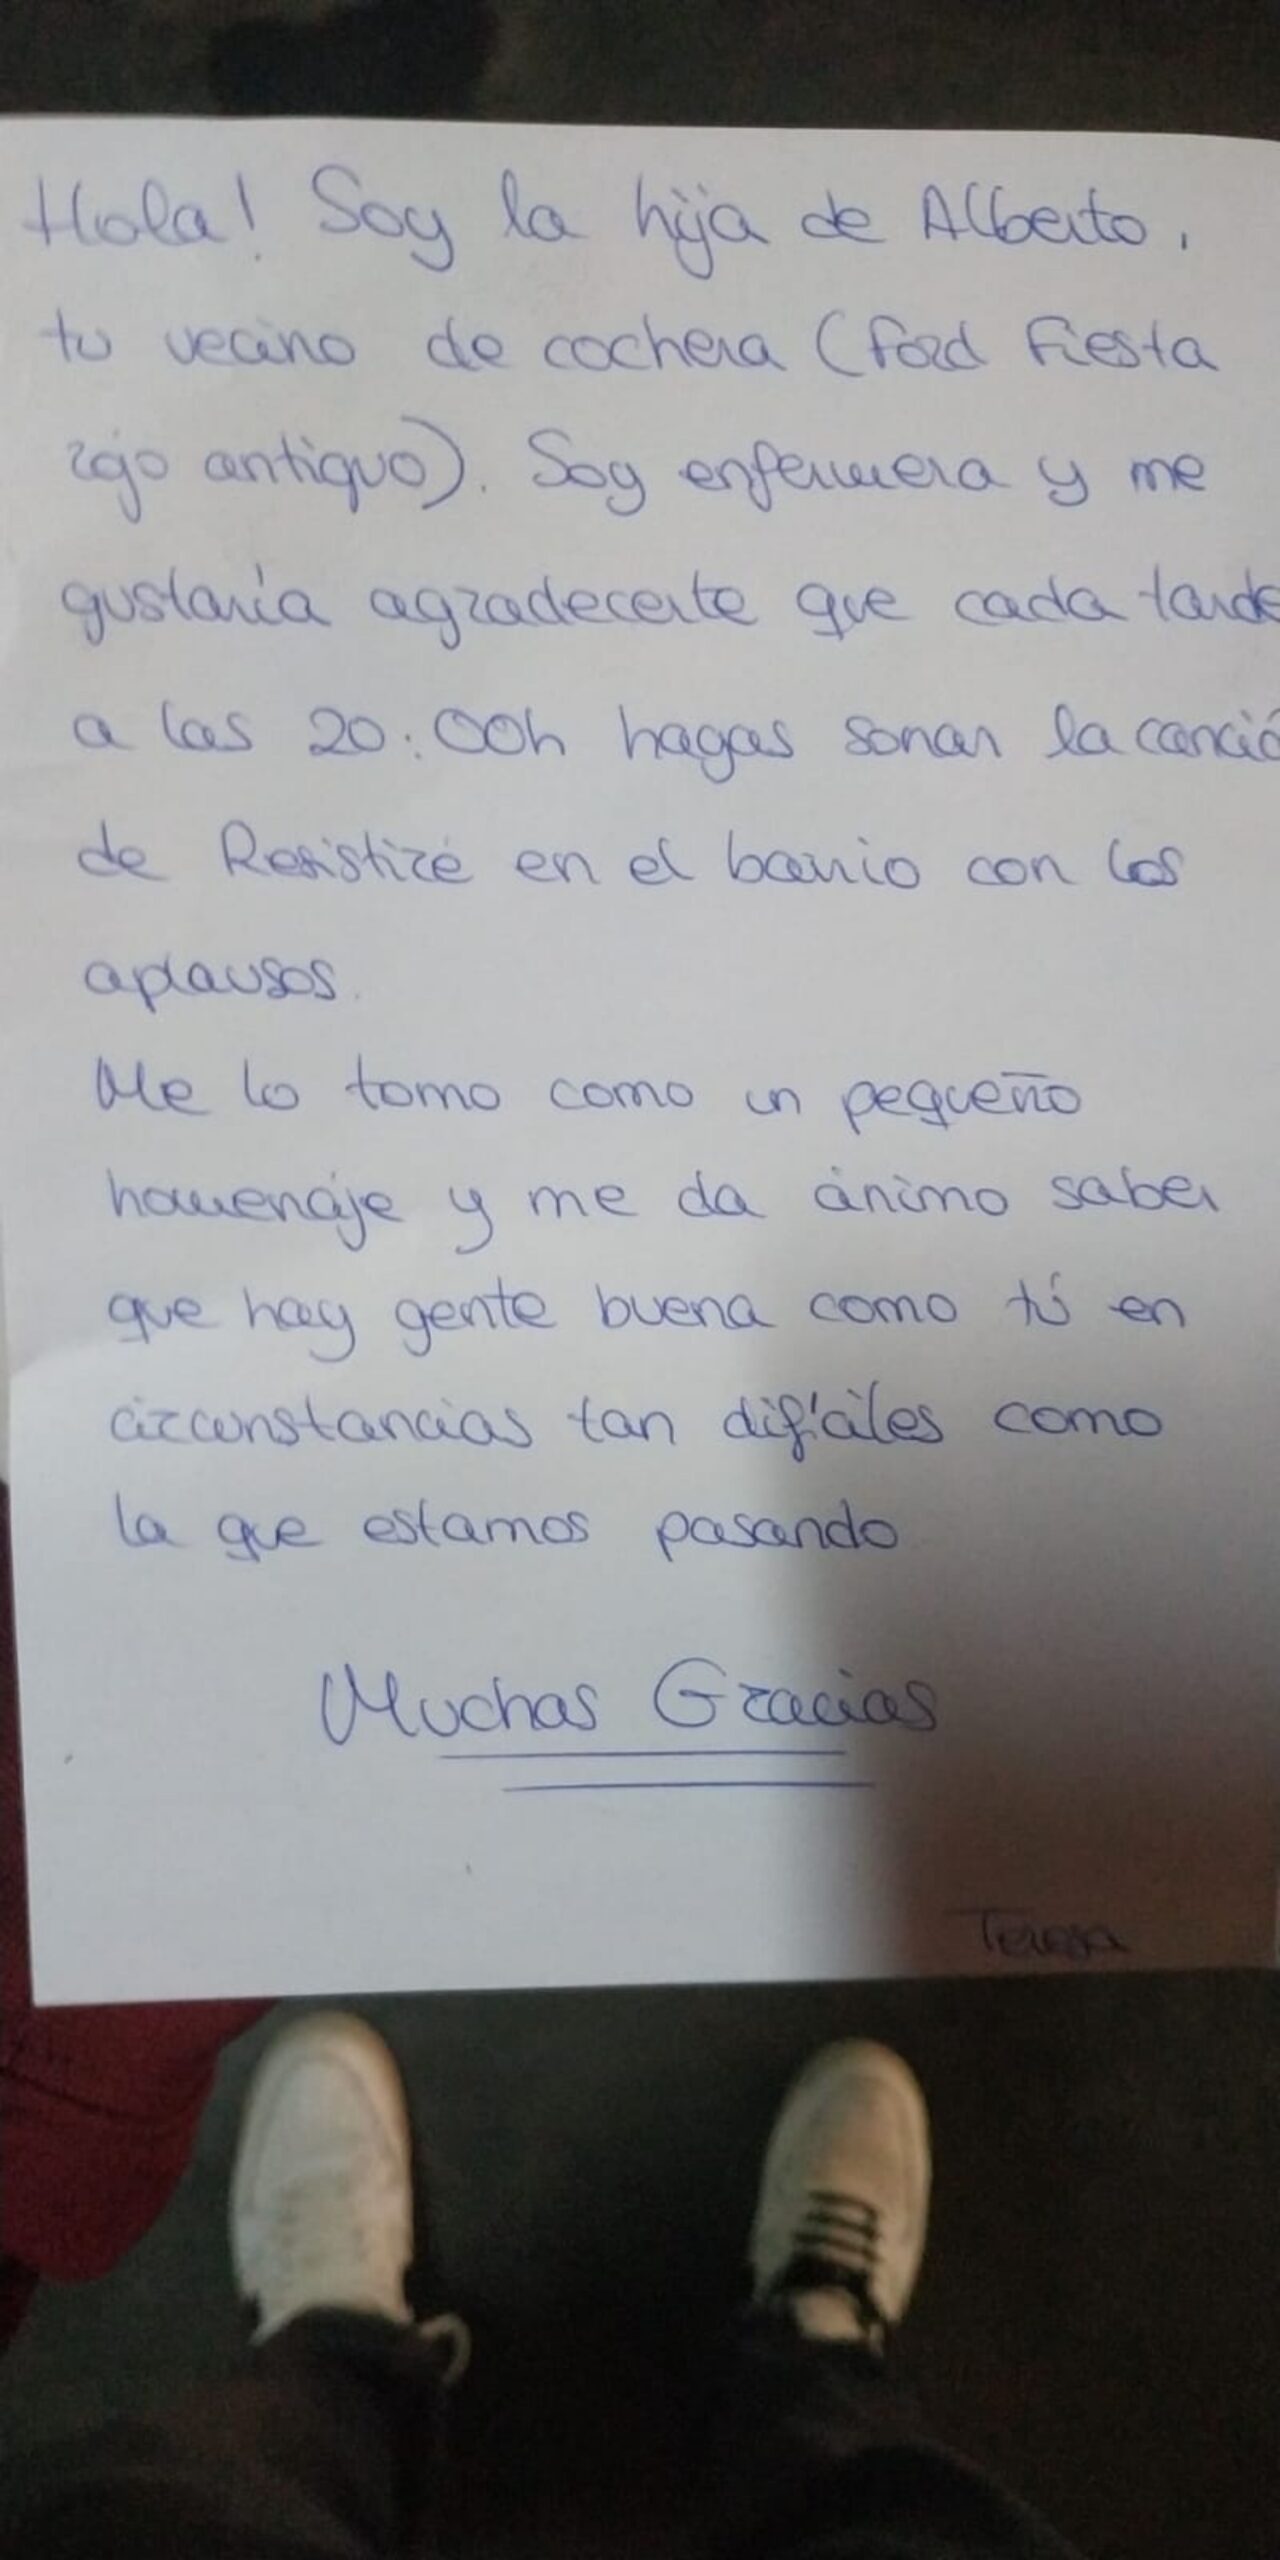 Hola! Soy la hija de Alberto,
tu vecino de cochera (Ford Fiesta
rojo antiguo). Soy enfermera y me
gustaría agradecerte que cada tarde
a las 20:00h hagas sonar la canció
de Resistiré en el barrio con los
aplausos.
Me lo tomo como un pequeño
homenaje y me da ánimo saber
que hay gente buena como tú en
circunstancias tan difíciles como
la que estamos pasando
Muchas Gracias
Teresa